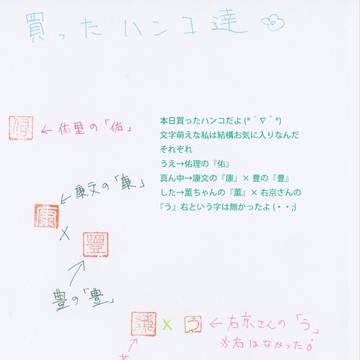 買ったハンコ達
佑
←佑里の「佑」
本日買ったハンコだよ (*´∇｀*)
文字萌えな私は結構お気に入りなんだ
それぞれ
うえ→佑理の『佑』
真ん中→康文の『康』×豊の『豊』
した→薫ちゃんの『薫』×右京さんの
『う』右という字は無かったよ (・・;)
←康文の「康」
康
×
豊
豊の「豊」
薫 × う ←右京さんの「う」
※右はなかった